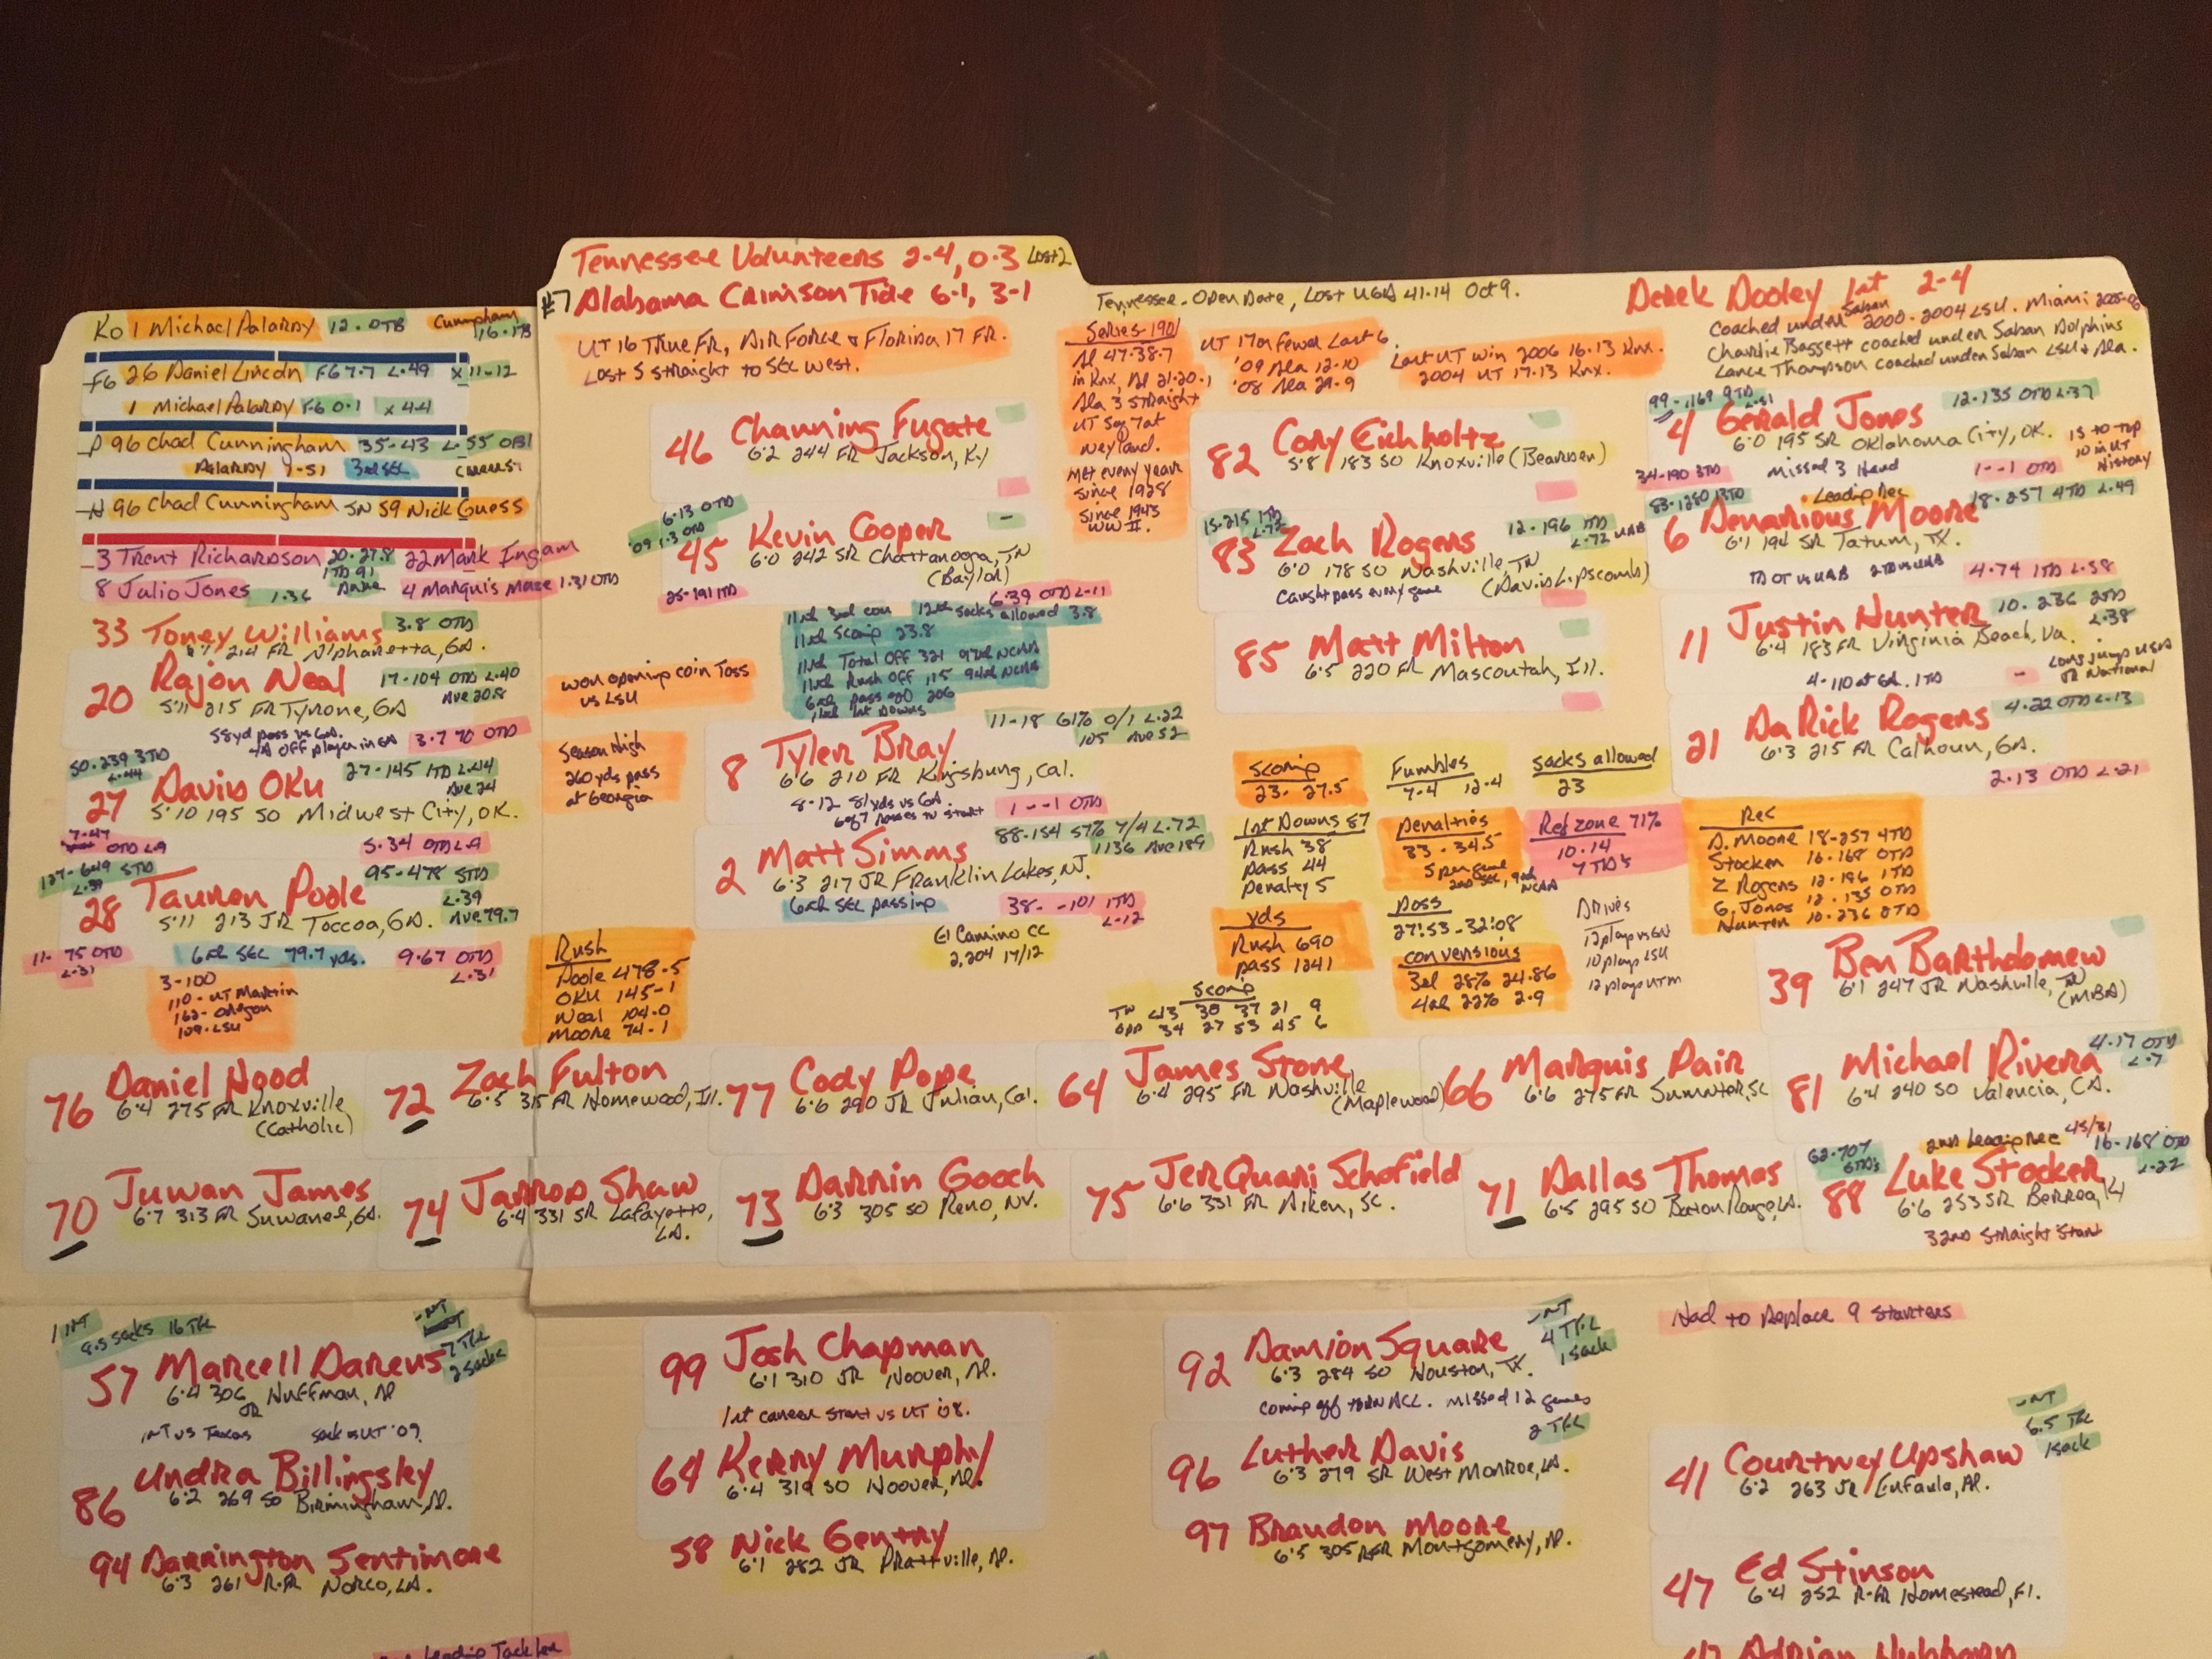 Tennessee Volunteers 2-4, 0-3 Lost 2
#7 Alabama Crimson Tide 6-1, 3-1
Tennessee - Open Date, Lost UGA 41-14 Oct 9.
Derek Dooley 1st 2-4
Coached under Saban 2000-2004 LSU. Miami
Charlie Baggett coached under Saban Dolphins
Lance Thompson coached under Saban LSU + Ala.
KO 1 Michael Palardy 12. OTB Cunningham 16-1TB
FG 26 Daniel Lincoln FG 7-7 L.49 x 11-12
1 Michael Palardy FG 0-1 x 4-4
P 96 Chad Cunningham 35-43 L.55 OB1
Palardy 1-51 3rd SEC
H 96 Chad Cunningham SN 59 Nick Guess
3 Trent Richardson 20-27.8 22 Mark Ingram
1TD 91
8 Julio Jones 1.36 4 Marquis Maze 1.31 OTD
UT 16 True FR, Air Force & Florida 17 FR.
Lost 5 straight to SEC West.
Series-1901
Al 47-38-7
in Knx, Al 21-20-1
Ala 3 straight
UT Seg 7 at
Neyland.
Met every year
since 1928
Since 1943
WW II.
UT 17 or fewer Last 6.
'09 Ala 12-10
'08 Ala 29-9
Last UT win 2006 16-13 Knx.
2004 UT 17-13 Knx.
46 Channing Fugate
6-2 244 FR Jackson, Ky
6-13 OTD
'09 1-3 OTD
45 Kevin Cooper
6-0 242 SR Chattanooga, TN
(Baylor)
25-191 1TD
6-39 OTD L-11
82 Cory Eichholtz
5-8 183 SO Knoxville (Bearden)
15-215 1TD L-72
12-196 1TD
L-72 UAB
83 Zach Rogers
6-0 178 SO Nashville, TN
Caught pass every game (David Lipscomb)
85 Matt Milton
6-5 220 FR Mascoutah, Ill.
99-1169 9TD
12-135 OTD L-37
4 Gerald Jones
6-0 195 SR Oklahoma City, OK.
missed 3 Hand
34-190 3TD
1--1 OTD
is to top
10 in UT
History
Leading Rec
18-257 4TD L-49
6 Denarious Moore
6-1 194 SR Tatum, TX.
TD OT vs UAB 2TD vs UAB
4-74 1TD L-58
10-236 2TD
L-38
11 Justin Hunter
6-4 183 FR Virginia Beach, Va.
4-110 at GA. 1TD
Long jump USA
JR National
4-22 OTD L-13
21 Da Rick Rogers
6-3 215 FR Calhoun, GA.
2-13 OTD L-21
33 Toney Williams 3-8 OTD
214 FR Alpharetta, GA.
20 Rajon Neal 17-104 OTD L-40
Ave 20.8
5-11 215 FR Tyrone, GA
58yd pass vs GA.
off player in GA 3-7 70 OTD
50-239 3TD
L-44
27 Davin Oku 27-145 1TD L-44
Ave 24
5-10 195 SO Midwest City, OK.
OTD L-9
5-34 OTD L-9
127-649 5TD
L-39
95-478 5TD
L-39
28 Tauren Poole
5-11 213 JR Toccoa, GA. Ave 79.7
11-75 OTD
L-31
6th SEC 79.7 yds.
9-67 OTD
L-31
3-100
110-UT Martin
162-Oregon
109-LSU
won opening coin toss
vs LSU
11th 3rd con 12th sacks allowed 3.8
11th Scoring 23.8
11th Total Off 321 97th NCAA
11th Rush Off 115 94th NCAA
6th pass off 206
11th 1st Downs
Season High
260 yds pass
at Georgia
11-18 61% 0/1 L-22
105 Ave 52
8 Tyler Bray
6-6 210 FR Kingsburg, Cal.
8-12 81yds vs GA.
1--1 OTD
88-154 57% 7/4 L-72
1136 Ave 189
2 Matt Simms
6-3 217 JR Franklin Lakes, NJ.
6th SEC passing
38--101 1TD
L-12
El Camino CC
2,204 17/12
Rush
Poole 478-5
OKU 145-1
Neal 104-0
Moore 74-1
Scoring
23-27.5
Fumbles
7-4 12-4
Sacks allowed
23
1st Downs 87
Rush 38
pass 44
penalty 5
Penalties
33-345
5 per game
2nd SEC, 9th NCAA
Red zone 71%
10-14
7 TD's
yds
Rush 690
pass 1241
Poss
27:53-32:08
conversions
3rd 28% 24-86
4th 22% 2-9
Drives
12 plays vs GA
10 plays LSU
12 plays UTM
Scoring
TN 43 30 37 21 9
opp 34 27 53 45 6
Rec
D. Moore 18-257 4TD
Stocker 16-168 OTD
Z Rogers 12-196 1TD
G. Jones 12-135 OTD
Hunter 10-236 2TD
39 Ben Bartholomew
6-1 247 JR Nashville, TN
(MBA)
76 Daniel Hood
6-4 275 FR Knoxville
(Catholic)
72 Zach Fulton
6-5 315 FR Homewood, Ill.
77 Cody Pope
6-6 290 JR Julian, Cal.
64 James Stone
6-4 295 FR Nashville
(Maplewood)
66 Marquis Pair
6-6 275 FR Sumter, SC
4-17 OTD
L-7
81 Michael Rivera
6-4 240 SO Valencia, CA.
70 Juwan James
6-7 313 FR Suwanee, GA.
74 Jarrod Shaw
6-4 331 SR Lafayette,
LA.
73 Darrin Gooch
6-3 305 SO Reno, NV.
75 JerQuari Schofield
6-6 331 FR Aiken, SC.
71 Dallas Thomas
6-5 295 SO Baton Rouge, LA.
62-707
6TD's
2nd Leading Rec 45/31
16-168 OTD
L-22
88 Luke Stocker
6-6 253 SR Berea, Ky
32nd Straight Start
1 INT
9.5 sacks 16 TFL
7 TFL
2 sacks
57 Marcell Dareus
6-4 306 JR Huffman, Al
INT vs Texas sack vs UT '09.
86 Undra Billingsky
6-2 269 SO Birmingham, Al.
94 Darrington Sentimore
6-3 261 R-FR Norco, LA.
99 Josh Chapman
6-1 310 JR Hoover, Al.
1st career start vs UT '08.
64 Kerry Murphy
6-4 319 SO Hoover, Al.
58 Nick Gentry
6-1 282 JR Prattville, Al.
-INT
4 TFL
1 sack
92 Damion Square
6-3 284 SO Houston, TX.
coming off torn ACL. missed 12 games
2 TFL
96 Luther Davis
6-3 279 SR West Monroe, LA.
97 Brandon Moore
6-5 305 RFR Montgomery, Al.
Had to Replace 9 Starters
-INT
6.5 TFL
1 sack
41 Courtney Upshaw
6-2 263 JR Eufaula, Al.
47 Ed Stinson
6-4 252 R-FR Homestead, Fl.
Leading Tackler
Adrian Hubbard